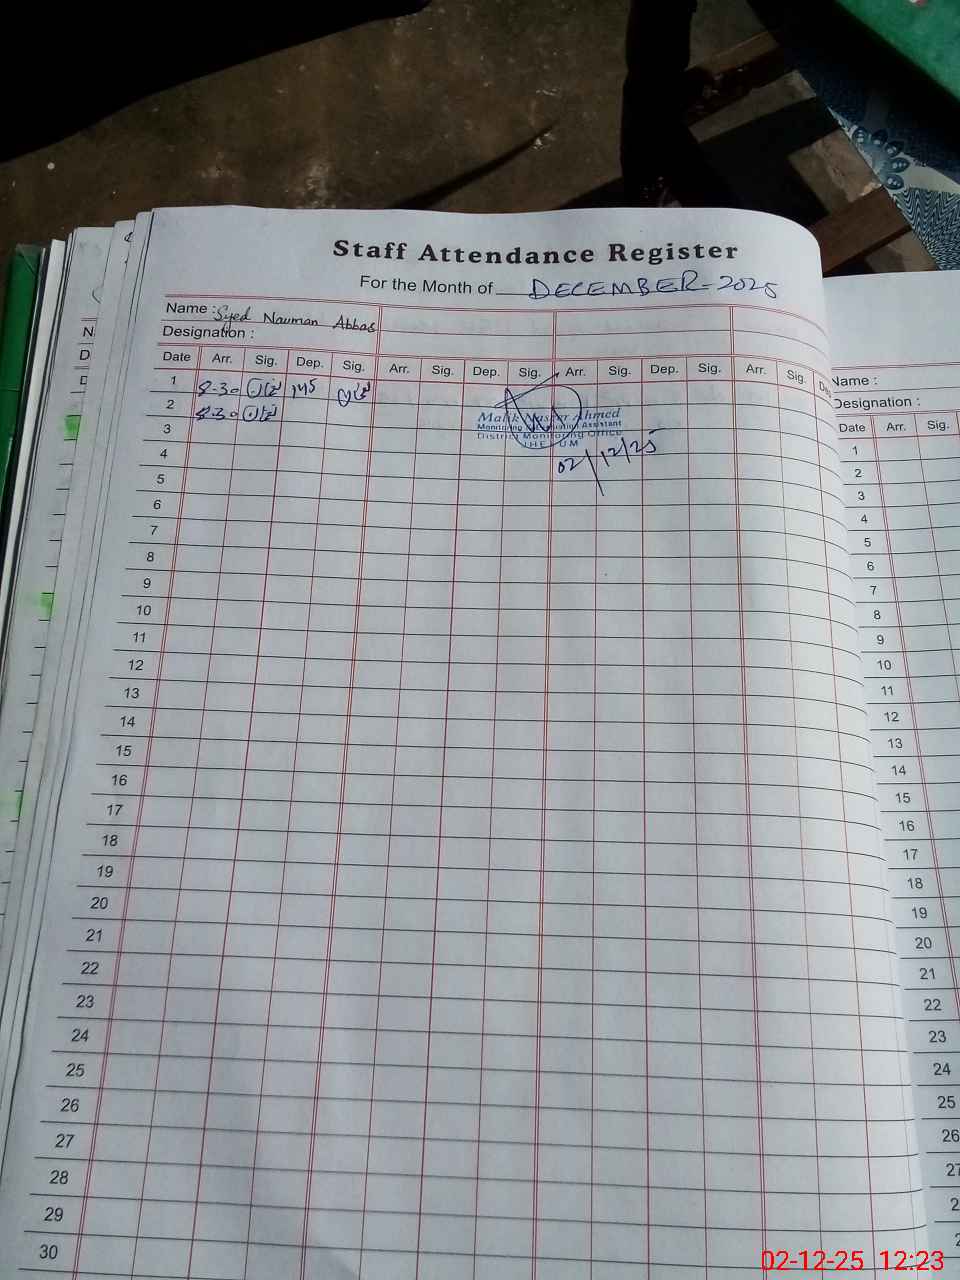 Staff Attendance Register
For the Month of DECEMBER-2025
Name : Syed Nauman Abbas
Designation :
Date Arr. Sig. Dep. Sig. Arr. Sig. Dep. Sig. Arr. Sig. Dep. Sig. Arr. Sig. Dep
1 8-30 نعمان 1:45 نعمان
2 8-30 نعمان
Malik Naseer Ahmed
Monitoring Assistant
District Monitoring Office
JHELUM
02/12/25
3
4
5
6
7
8
9
10
11
12
13
14
15
16
17
18
19
20
21
22
23
24
25
26
27
28
29
30
Name :
Designation :
Date Arr. Sig.
1
2
3
4
5
6
7
8
9
10
11
12
13
14
15
16
17
18
19
20
21
22
23
24
25
26
02-12-25 12:23